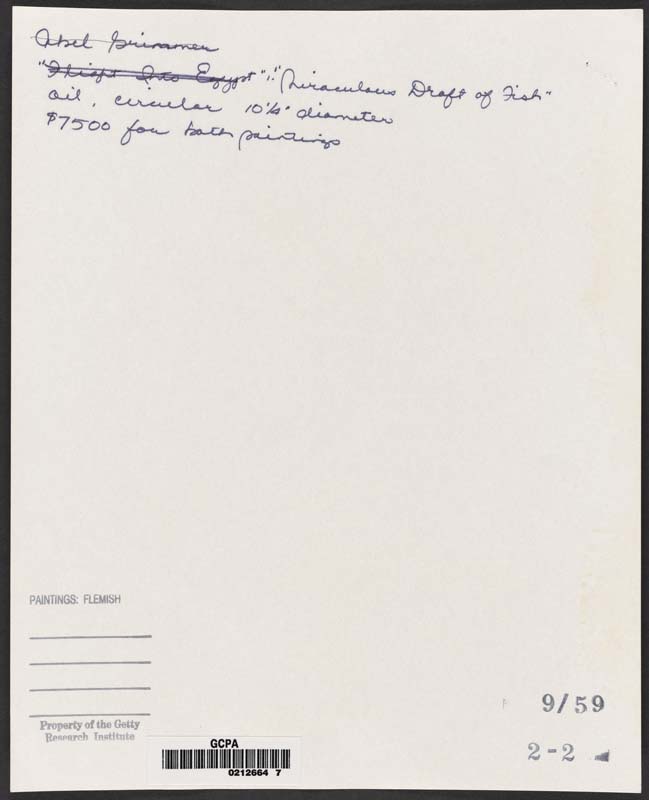 Abel Grimmer
"Flight Into Egypt", "Miraculous Draft of Fish"
oil, circular 10¼" diameter
$7500 for both paintings
PAINTINGS: FLEMISH
Property of the Getty
Research Institute
GCPA
0212664 7
9/59
2-2